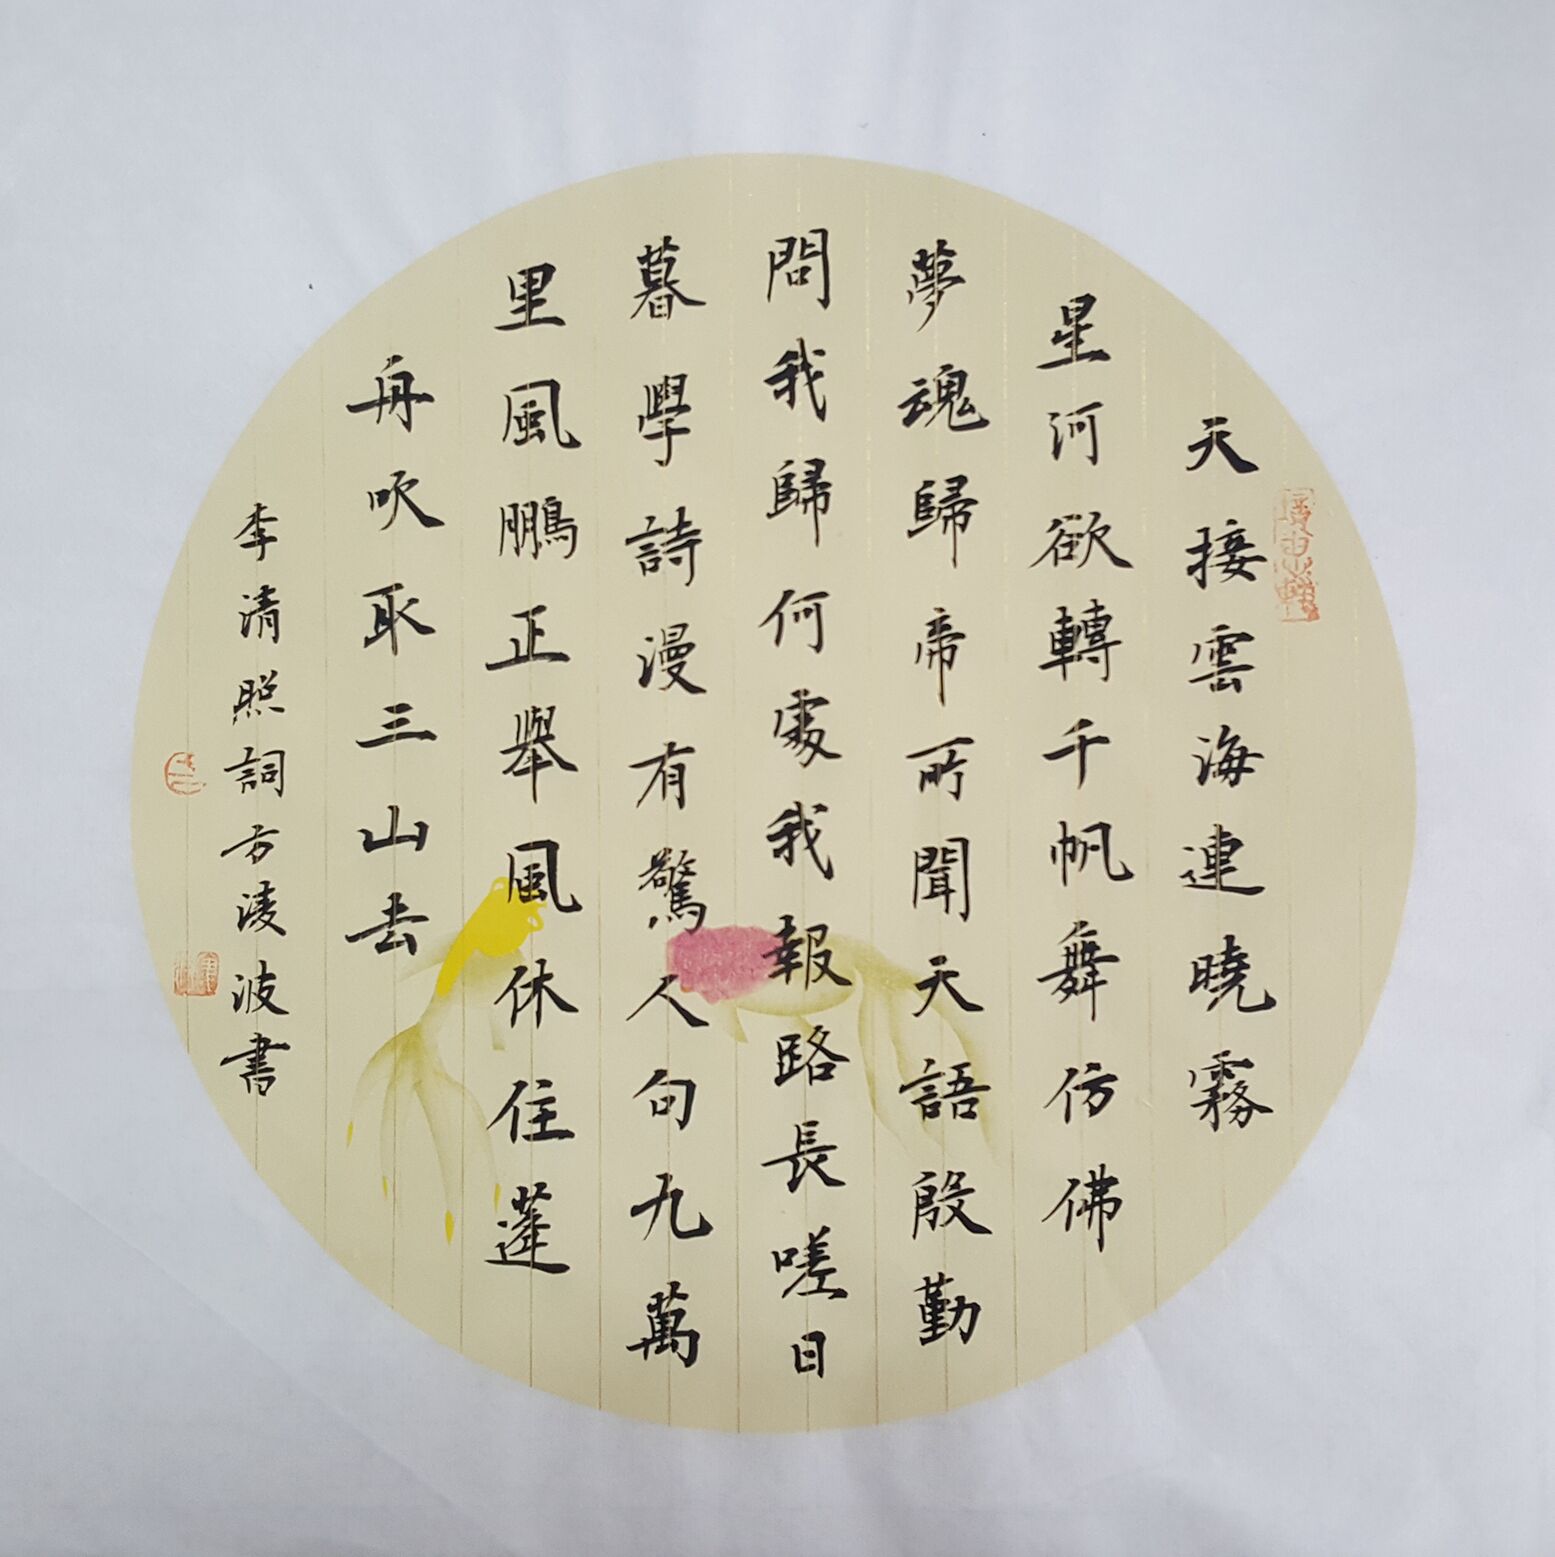 天接雲海連曉霧
星河欲轉千帆舞仿佛
夢魂歸帝所聞天語殷勤
問我歸何處我報路長嗟日
暮學詩漫有驚人句九萬
里風鵬正舉風休住蓬
舟吹取三山去
李清照詞方淩波書